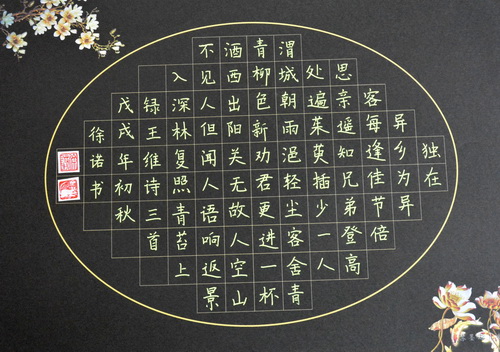 独在
异乡为异
客每逢佳节倍
思亲遥知兄弟登高
处遍茱萸插少一人
渭城朝雨浥轻尘客舍青
青柳色新劝君更进一杯
酒西出阳关无故人空山
不见人但闻人语响返景
入深林复照青苔上
録王维诗三首
戊戌年初秋
徐诺书